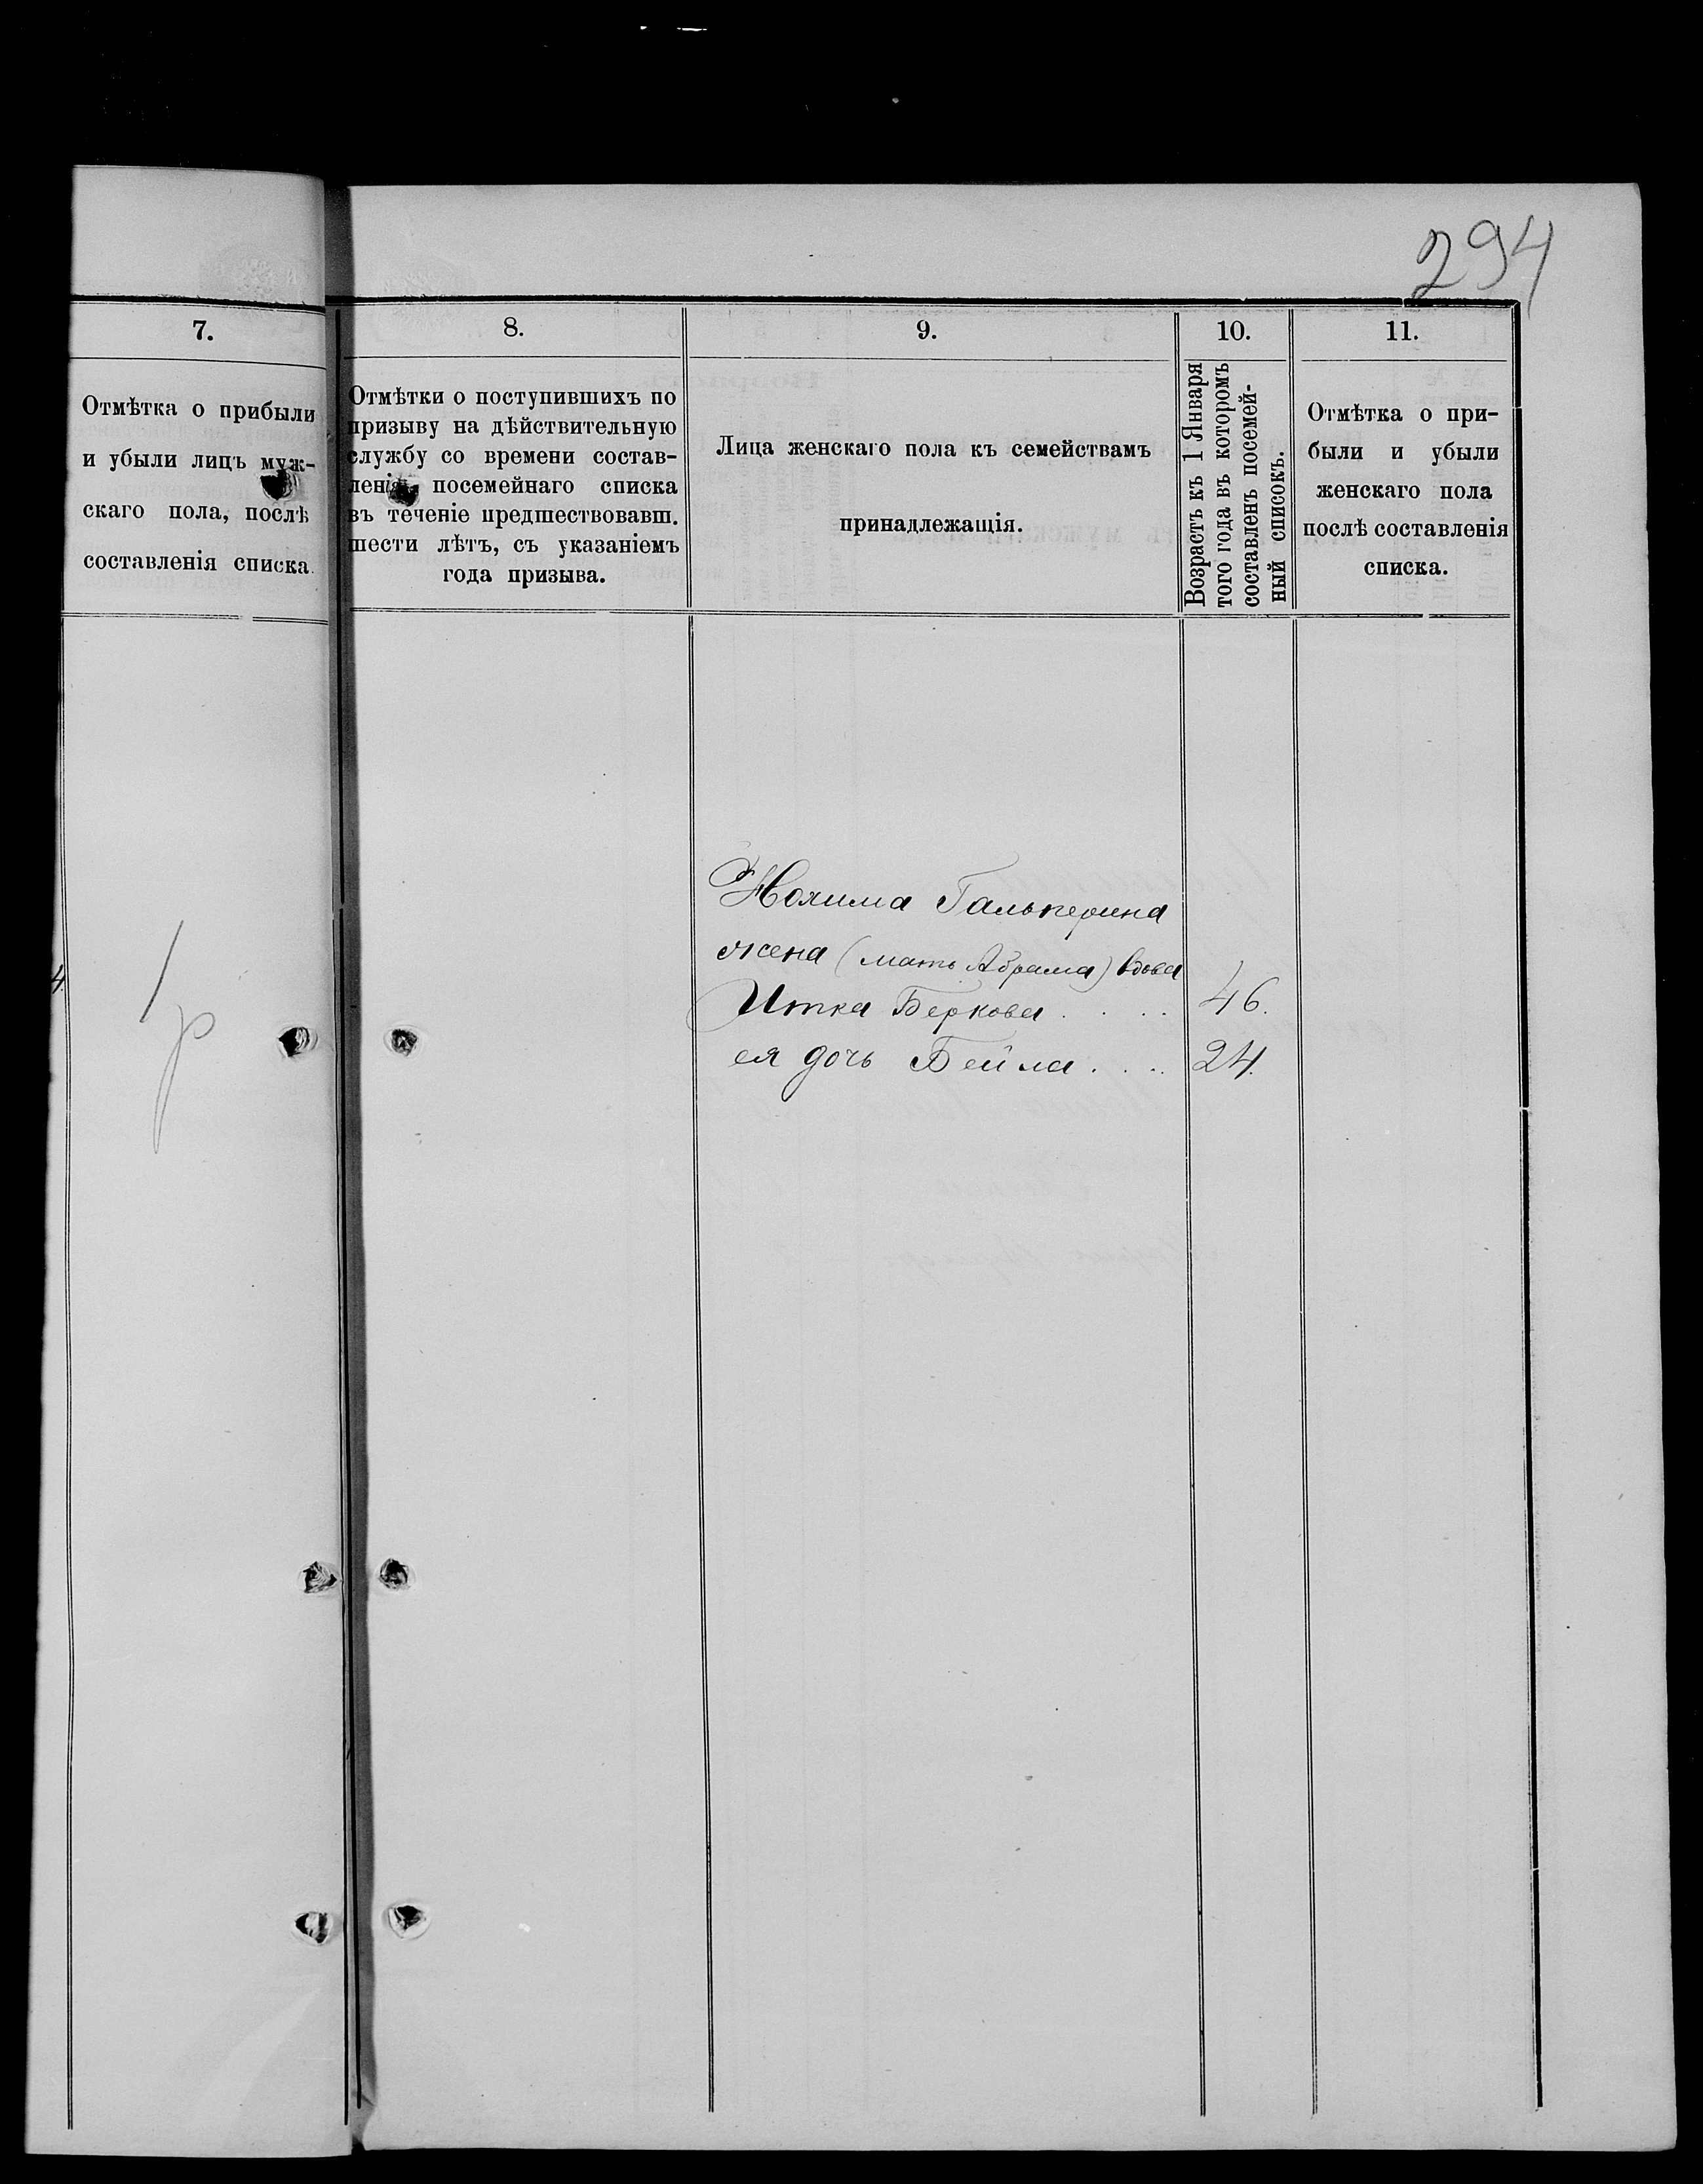 294
7.
Отмѣтка о прибыли
и убыли лицъ муж-
скаго пола, послѣ
составленія списка.
8.
Отмѣтки о поступившихъ по
призыву на дѣйствительную
службу со времени состав-
ленія посемейнаго списка
въ теченіе предшествовавш.
шести лѣтъ, съ указаніемъ
года призыва.
9.
Лица женскаго пола къ семействамъ
принадлежащія.
10.
Возрастъ къ 1 Января
того года въ которомъ
составленъ посемей-
ный списокъ.
11.
Отмѣтка о при-
были и убыли
женскаго пола
послѣ составленія
списка.
Гальперина
жена (мать Абрама) вдова
Итка Беркова . . . . 46.
ея дочь Бейла . . . . 24.